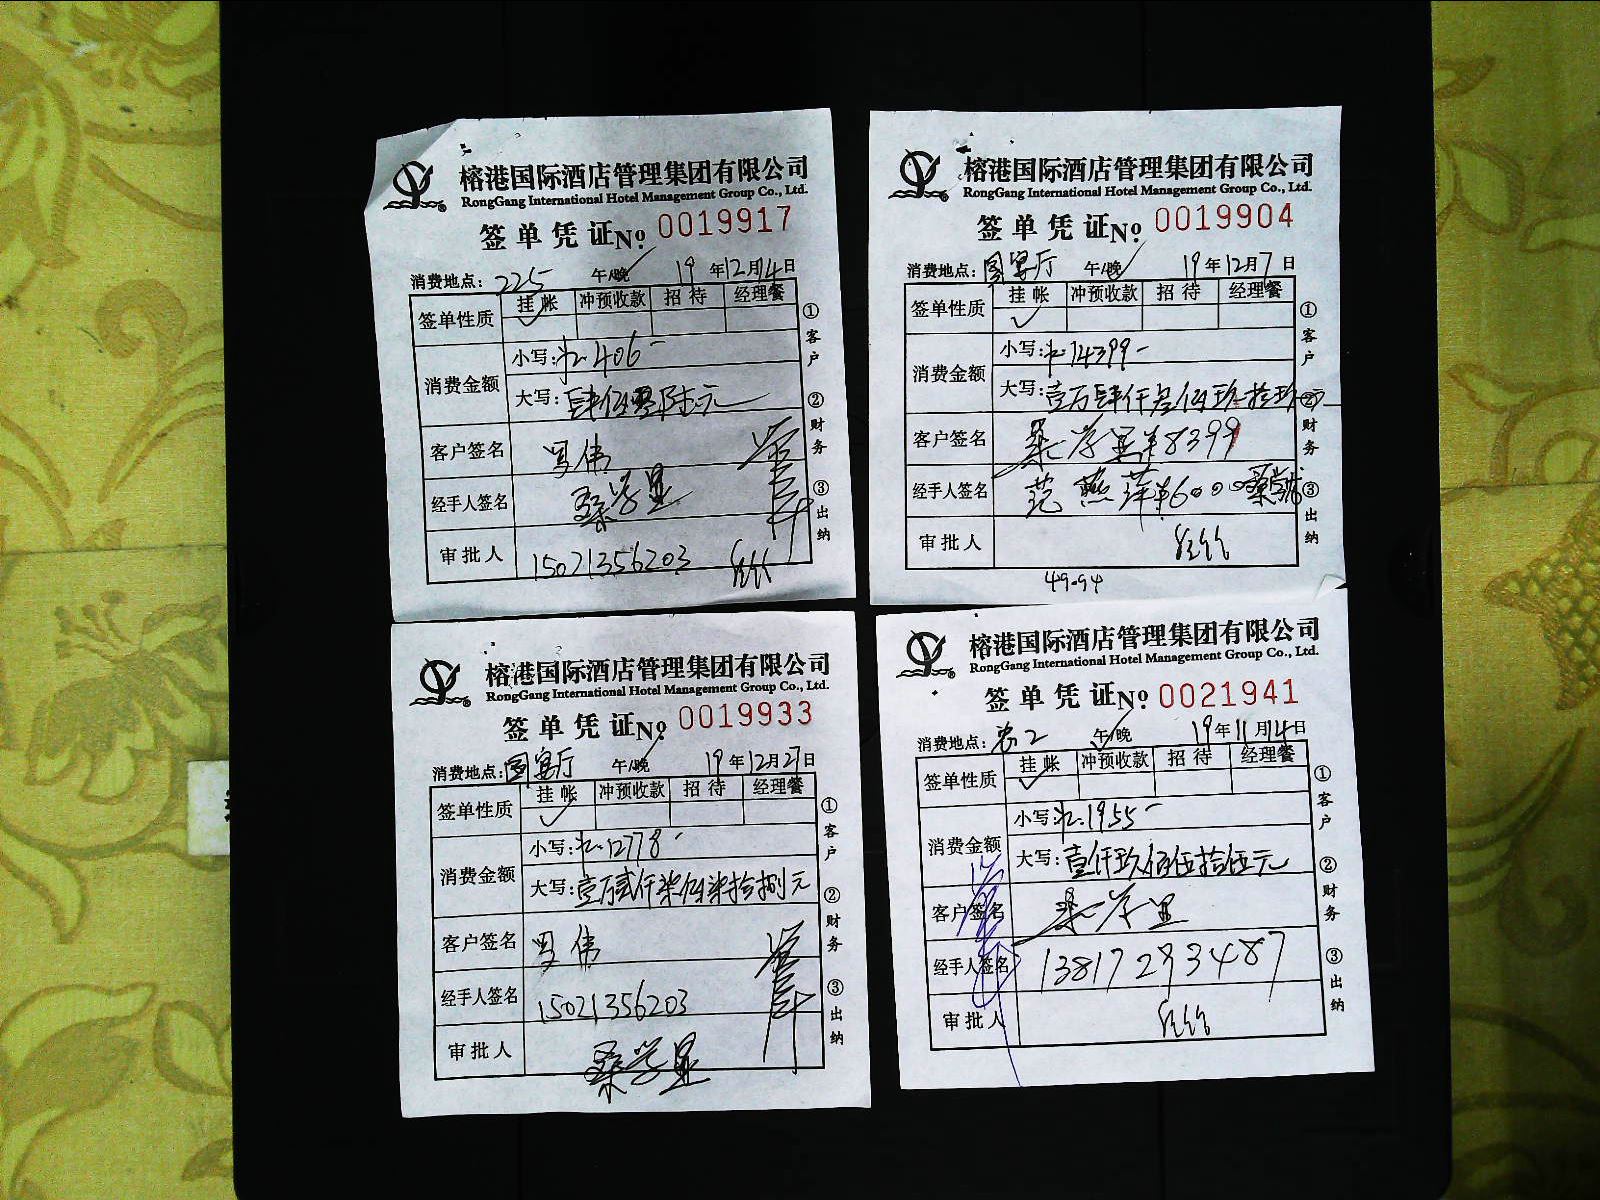 榕港国际酒店管理集团有限公司
RongGang International Hotel Management Group Co., Ltd.
签单凭证No 0019917
消费地点：225 午/晚 19年12月14日
签单性质 挂帐 冲预收款 招待 经理餐
✓
消费金额 小写：406-
大写：肆佰零陆元
客户签名 罗伟
经手人签名 桑学显
审批人 15021356203
①客户 ②财务 ③出纳
榕港国际酒店管理集团有限公司
RongGang International Hotel Management Group Co., Ltd.
签单凭证No 0019904
消费地点：国宴厅 午/晚 19年12月7日
签单性质 挂帐 冲预收款 招待 经理餐
✓
消费金额 小写：14399-
大写：壹万肆仟叁佰玖拾玖元
客户签名 桑学显 ¥8399
经手人签名 范燕萍 ¥6000
审批人
①客户 ②财务 ③出纳
49.94
榕港国际酒店管理集团有限公司
RongGang International Hotel Management Group Co., Ltd.
签单凭证No 0019933
消费地点：国宴厅 午/晚 19年12月27日
签单性质 挂帐 冲预收款 招待 经理餐
✓
消费金额 小写：12778-
大写：壹万贰仟柒佰柒拾捌元
客户签名 罗伟
经手人签名 15021356203
审批人 桑学显
①客户 ②财务 ③出纳
榕港国际酒店管理集团有限公司
RongGang International Hotel Management Group Co., Ltd.
签单凭证No 0021941
消费地点： 午/晚 19年11月14日
签单性质 挂帐 冲预收款 招待 经理餐
✓
消费金额 小写：1955-
大写：壹仟玖佰伍拾伍元
客户签名 桑学显
经手人签名 13817293487
审批人
①客户 ②财务 ③出纳